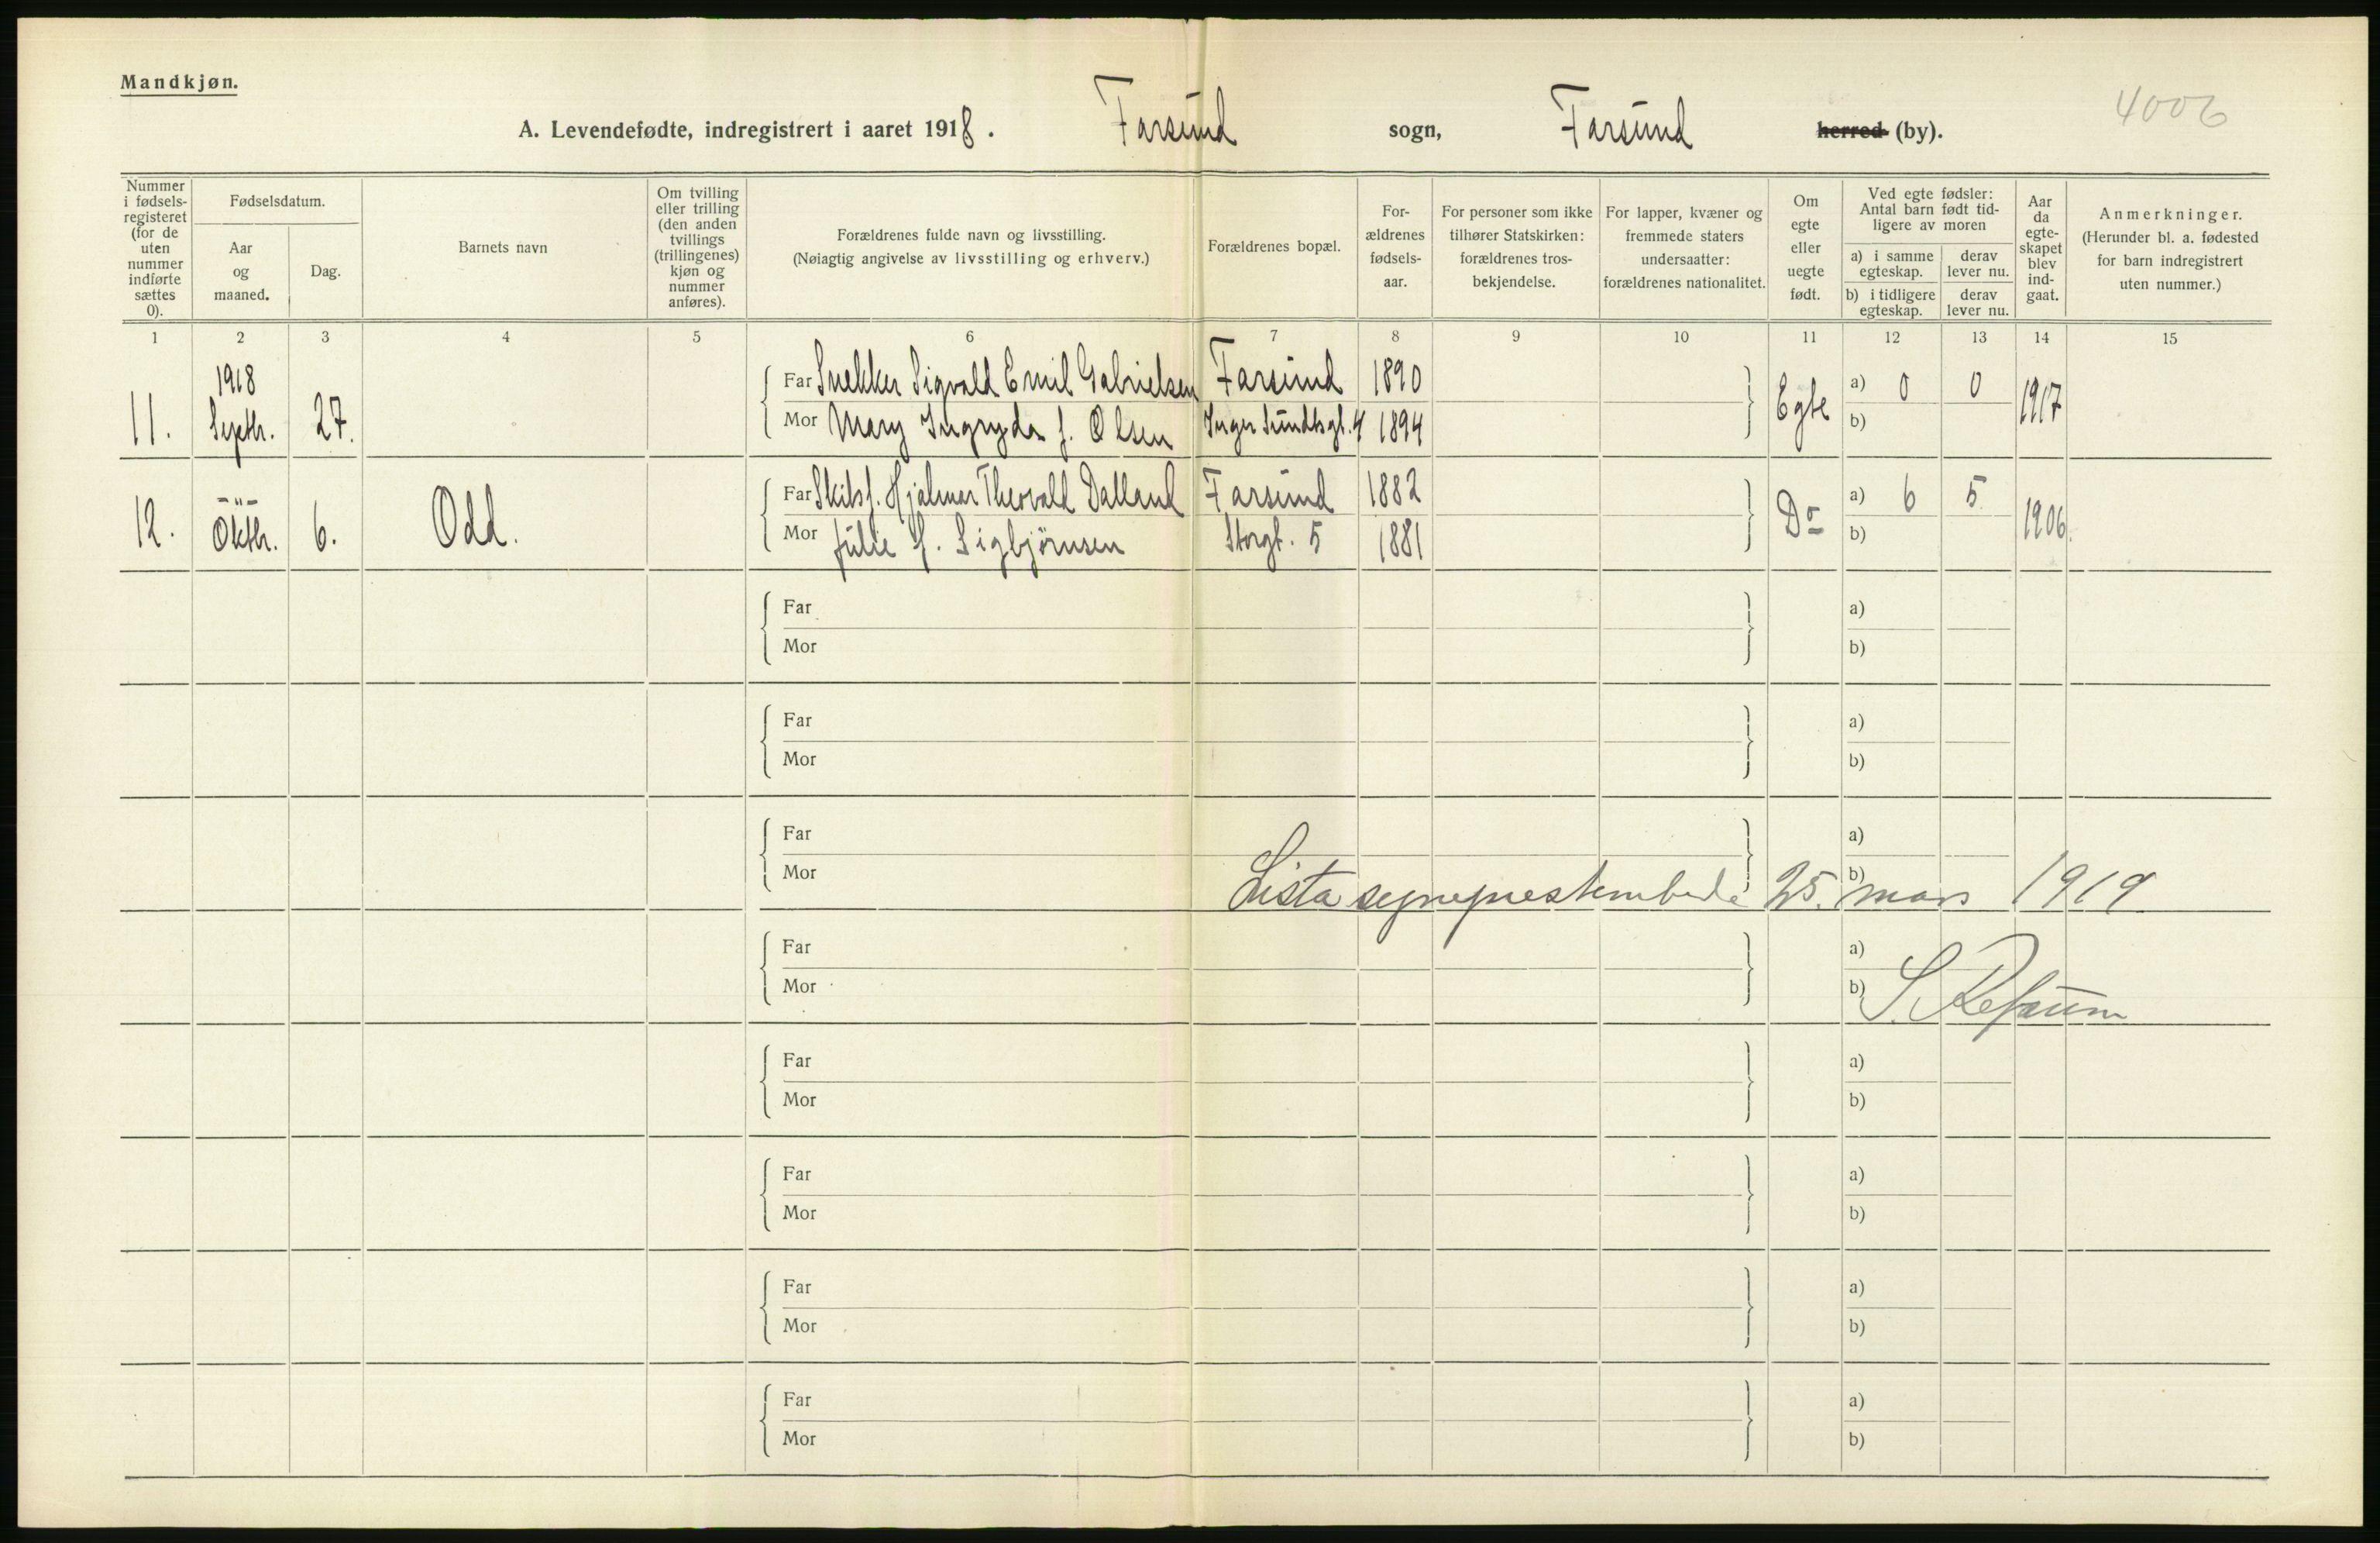 Mandkjøn.
4006
A. Levendefødte, indregistrert i aaret 1918. Farsund sogn, Farsund herred (by).
Nummer i fødsels-registeret (for de uten nummer indførte sættes 0).
Fødselsdatum.
Aar og maaned.
Dag.
Barnets navn
Om tvilling eller trilling (den anden tvillings (trillingenes) kjøn og nummer anføres).
Forældrenes fulde navn og livsstilling.
(Nøiagtig angivelse av livsstilling og erhverv.)
Forældrenes bopæl.
For-ældrenes fødsels-aar.
For personer som ikke tilhører Statskirken: forældrenes tros-bekjendelse.
For lapper, kvæner og fremmede staters undersaatter: forældrenes nationalitet.
Om egte eller uegte født.
Ved egte fødsler: Antal barn født tid-ligere av moren
a) i samme egteskap.
derav lever nu.
b) i tidligere egteskap.
derav lever nu.
Aar da egte-skapet blev ind-gaat.
Anmerkninger.
(Herunder bl. a. fødested for barn indregistrert uten nummer.)
1 2 3 4 5 6 7 8 9 10 11 12 13 14 15
11. 1918 Septbr. 27. Far Snekker Sigvald Emil Gabrielsen Farsund 1890 Egte a) 0 0 1917
Mor Mary Ingryda f. Olsen Inger Sundtsgt. 4 1894 b)
12. -"- Oktbr. 6. Odd. Far Skibsf. Hjalmar Thorvald Dalland Farsund 1882 Do a) 6 5 1906.
Mor Julie f. Sigbjørnsen Storgt. 5 1881 b)
Far a)
Mor b)
Far a)
Mor b)
Far a)
Mor b)
Lista sogneprestembede 25. mars 1919
Far a)
Mor b)
S. Refsum
Far a)
Mor b)
Far a)
Mor b)
Far a)
Mor b)
Far a)
Mor b)